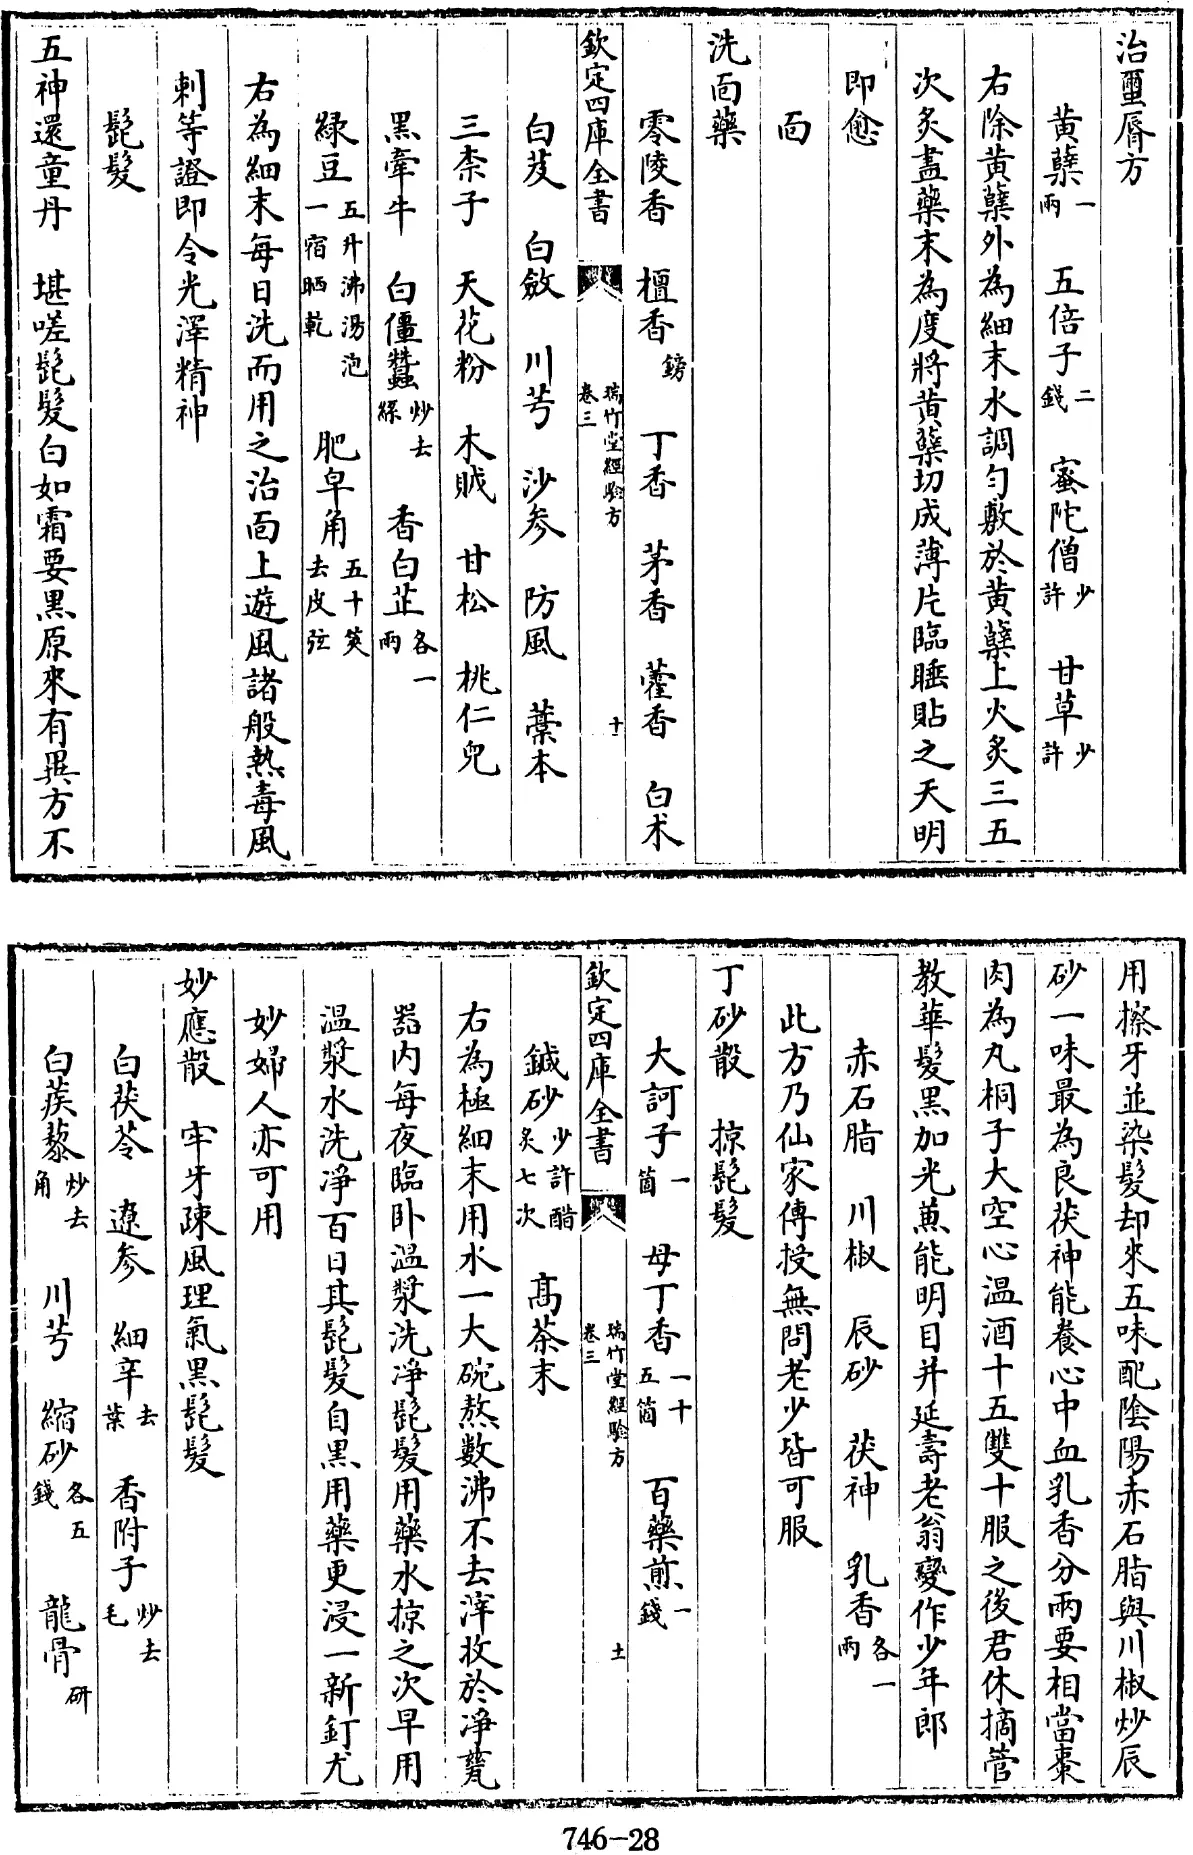 治蠒脣方
黃蘖一兩　五倍子二錢　蜜陀僧少許　甘草少許
右除黃蘖外為細末水調勻敷於黃蘖上火炙三五
次炙盡藥末為度將黃蘖切成薄片臨睡貼之天明
即愈
面
洗面藥
零陵香　檀香鎊　丁香　茅香　藿香　白术
欽定四庫全書　瑞竹堂經驗方卷三　十
白芨　白斂　川芎　沙參　防風　藁本
三柰子　天花粉　木賊　甘松　桃仁皃
黑牽牛　白僵蠶炒去綵　香白芷各一兩
綠豆五升沸湯泡一宿晒乾　肥皁角五十莢去皮弦
右為細末每日洗而用之治面上遊風諸般熱毒風
刺等證即令光澤精神
髭髮
五神還童丹　堪嗟髭髮白如霜要黑原來有異方不
用擦牙並染髮却來五味配陰陽赤石脂與川椒炒辰
砂一味最為良茯神能養心中血乳香分兩要相當棗
肉為丸桐子大空心溫酒十五雙十服之後君休摘管
教華髮黑加光兼能明目并延壽老翁變作少年郎
赤石脂　川椒　辰砂　茯神　乳香各一兩
此方乃仙家傳授無問老少皆可服
丁砂散　掠髭髮
大訶子一箇　母丁香一十五箇　百藥煎一錢
欽定四庫全書　瑞竹堂經驗方卷三　十一
鍼砂少許醋炙七次　高茶末
右為極細末用水一大碗熬數沸不去滓收於淨甆
器內每夜臨卧溫漿洗淨髭髮用藥水掠之次早用
溫漿水洗淨百日其髭髮自黑用藥更浸一新釘尤
妙婦人亦可用
妙應散　牢牙疎風理氣黑髭髮
白茯苓　遼參　細辛去葉　香附子炒去毛
白蒺藜炒去角　川芎　縮砂各五錢　龍骨研
746-28